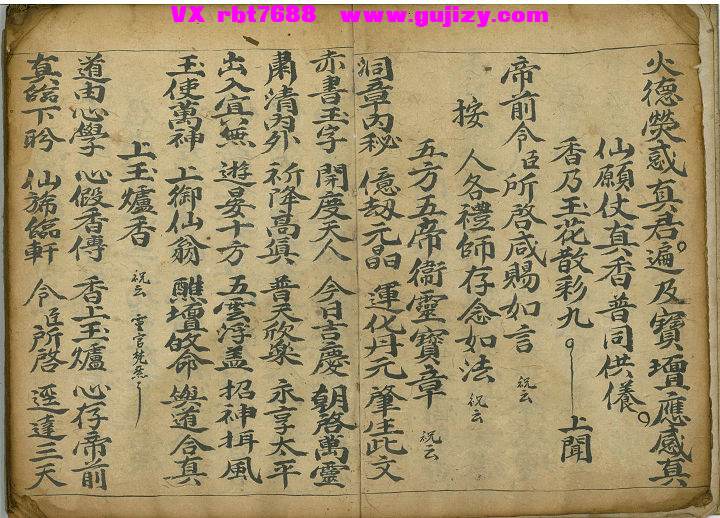 VX rbt7688 www.gujizy.com
火德熒惑真君遍及寶壇應感真
仙願仗真香普同供養
香乃玉花散彩九 上聞
帝前令臣所啓咸賜如言 祝云
按 人各禮師存念如法 祝云
五方五帝衞靈寶章 祝云
洞章內秘 億劫元晶 運化丹元 肇生此文
赤書玉字 開度天人 今日吉慶 朝啓萬靈
肅清內外 祈降高真 普天欣樂 永享太平
出入宜無 遊晏十方 五雲浮盖 招神揖風
玉使萬神 上御仙翁 醮壇的命 與道合真
上玉爐香 祝云
道由心學 心假香傳 香上玉爐 心存帝前
真 下盼 仙旆臨軒 令臣所啓 逕達三天